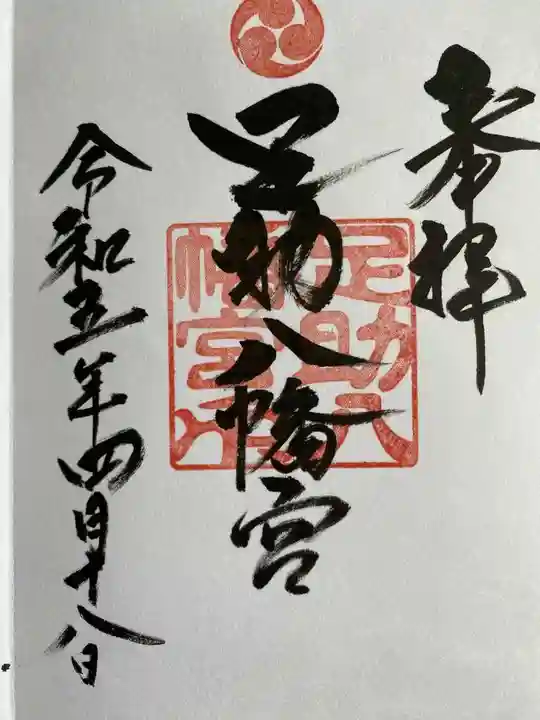 奉拝
足助八幡宮
足助八幡宮
令和五年四月十八日